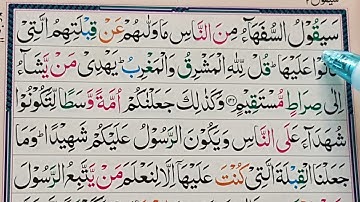 سَيَقُوْلُ السُّفَهَآءُ مِنَ النَّاسِ مَا وَلّٰىهُمْ عَنْ قِبْلَتِهِمُ الَّتِيْ
كَانُوْا عَلَيْهَا ؕ قُلْ لِّلّٰهِ الْمَشْرِقُ وَالْمَغْرِبُ ؕ يَهْدِيْ مَنْ يَّشَآءُ
اِلٰى صِرَاطٍ مُّسْتَقِيْمٍ ۝۱۴۲ وَكَذٰلِكَ جَعَلْنٰكُمْ اُمَّةً وَّسَطًا لِّتَكُوْنُوْا
شُهَدَآءَ عَلَى النَّاسِ وَيَكُوْنَ الرَّسُوْلُ عَلَيْكُمْ شَهِيْدًا ؕ وَمَا
جَعَلْنَا الْقِبْلَةَ الَّتِيْ كُنْتَ عَلَيْهَاۤ اِلَّا لِنَعْلَمَ مَنْ يَّتَّبِعُ الرَّسُوْلَ